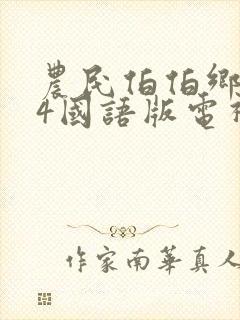 農民伯伯鄉
4國語版電
作家南華真人